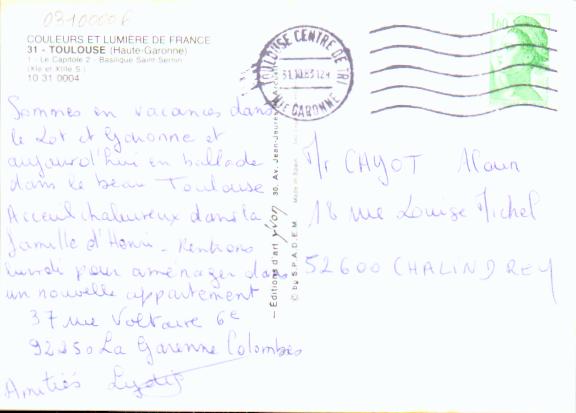 0310000F
COULEURS ET LUMIERE DE FRANCE
31 - TOULOUSE (Haute-Garonne)
1 - Le Capitole 2 - Basilique Saint Sernin
(XIe et XIIIe S.)
10 31 0004
TOULOUSE CENTRE DE TRI
Hte GARONNE
1,60
Sommes en vacances dans
le Lot et Garonne et
aujourd'hui en ballade
dans le beau Toulouse
Acceuil chaleureux dans la
famille d'Henri - Rentrons
lundi pour aménager dans
un nouvelle appartement
37 rue Voltaire 6e
92250 La Garenne Colombes
Amitiés
— Editions d'art yvon 30, Av. Jean-Jaurès
© by S.P.A.D.E.M. Made in Spain
Mr CHYOT Alain
18 rue Louise Michel
52600 CHALINDREY